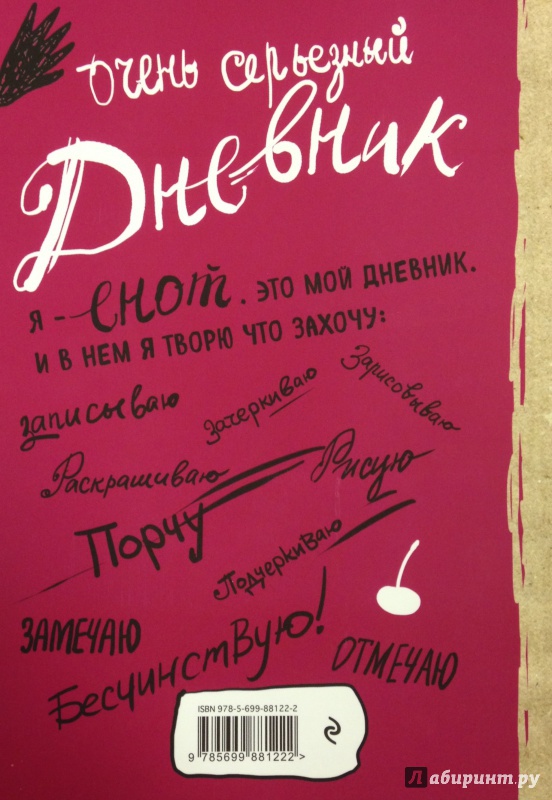 очень серьезный
Дневник
Я - Енот. Это мой дневник.
И в нем я творю что захочу:
записываю
Зачеркиваю
Зарисовываю
Раскрашиваю
Рисую
Порчу
Подчеркиваю
ЗАМЕЧАЮ
Бесчинствую!
ОТМЕЧАЮ
ISBN 978-5-699-88122-2
9 785699 881222 >
Лабиринт.ру